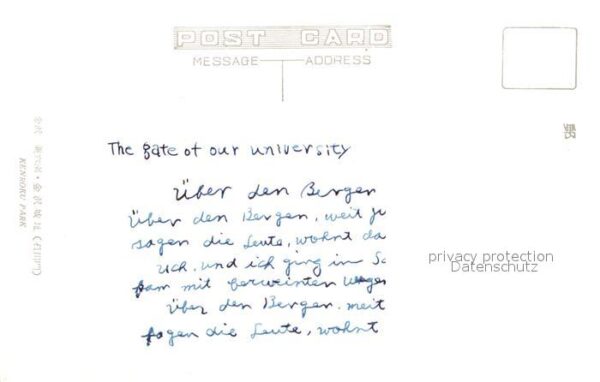 POST CARD
MESSAGE ADDRESS
KENROKU PARK
The gate of our university
Über den Bergen
Über den Bergen, weit
sagen die Leute, wohnt da
uch. und ich ging in
kam mit verweinten
Über den Bergen. weit
sagen die Leute, wohnt
privacy protection
Datenschutz